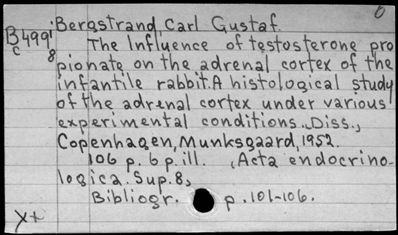 Bergstrand, Carl Gustaf.
B499' The Influence of testosterone pro
c 8 pionate on the adrenal cortex of the
infantile rabbit. A histological study
of the adrenal cortex under various
experimental conditions., Diss.,
Copenhagen, Munksgaard, 1952.
106 p. 6 p. ill. , Acta endocrino-
logica. Sup. 8,
Bibliogr. p. 101-106.